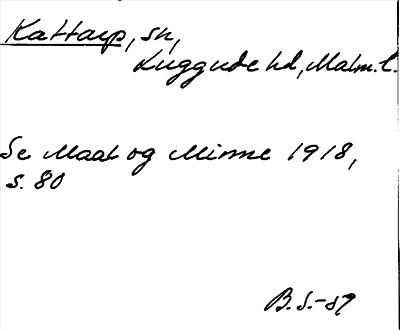 Kattarp, sn,
Luggude hd, Malm. l.
Se Maal og Minne 1918,
s. 80
B.S.-89